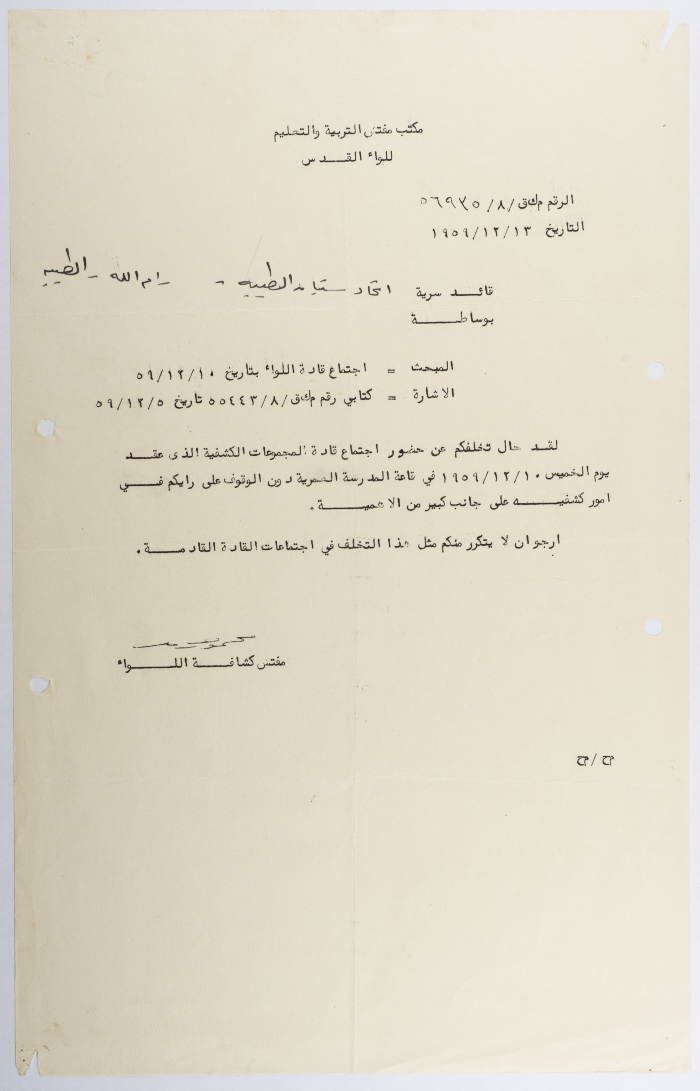 مكتب مفتش التربية والتعليم
للواء القدس
الرقم م ك ق/٨/٥٦٩٣٥
التاريخ ١٩٥٩/١٢/١٣
قائد سرية اتحاد شبان الطيبه - رام الله - الطيبه
بوساطة
المبحث = اجتماع قادة اللواء بتاريخ ٥٩/١٢/١٠
الاشارة = كتابي رقم م ك ق/٨/٥٥٤٤٣ تاريخ ٥٩/١٢/٥
لقد حال تخلفكم عن حضور اجتماع قادة المجموعات الكشفية الذى عقد
يوم الخميس ١٩٥٩/١٢/١٠ في قاعة المدرسة العمرية دون الوقوف على رايكم في
امور كشفيه على جانب كبير من الاهمية .
ارجو ان لا يتكرر منكم مثل هذا التخلف في اجتماعات القادة القادمة .
مفتش كشافة اللواء
ح/ح